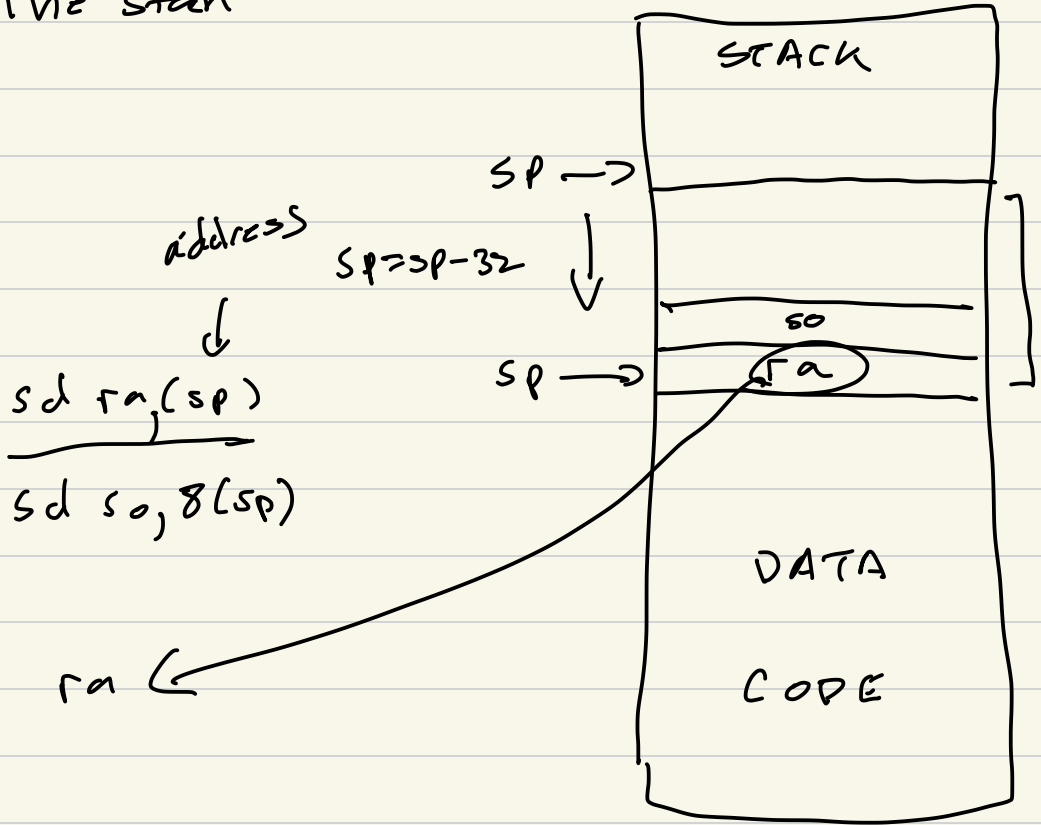 The stack
STACK
sp →
address
sp=sp-32
so
sp →
ra
sd ra,(sp)
sd so, 8(sp)
DATA
ra
CODE